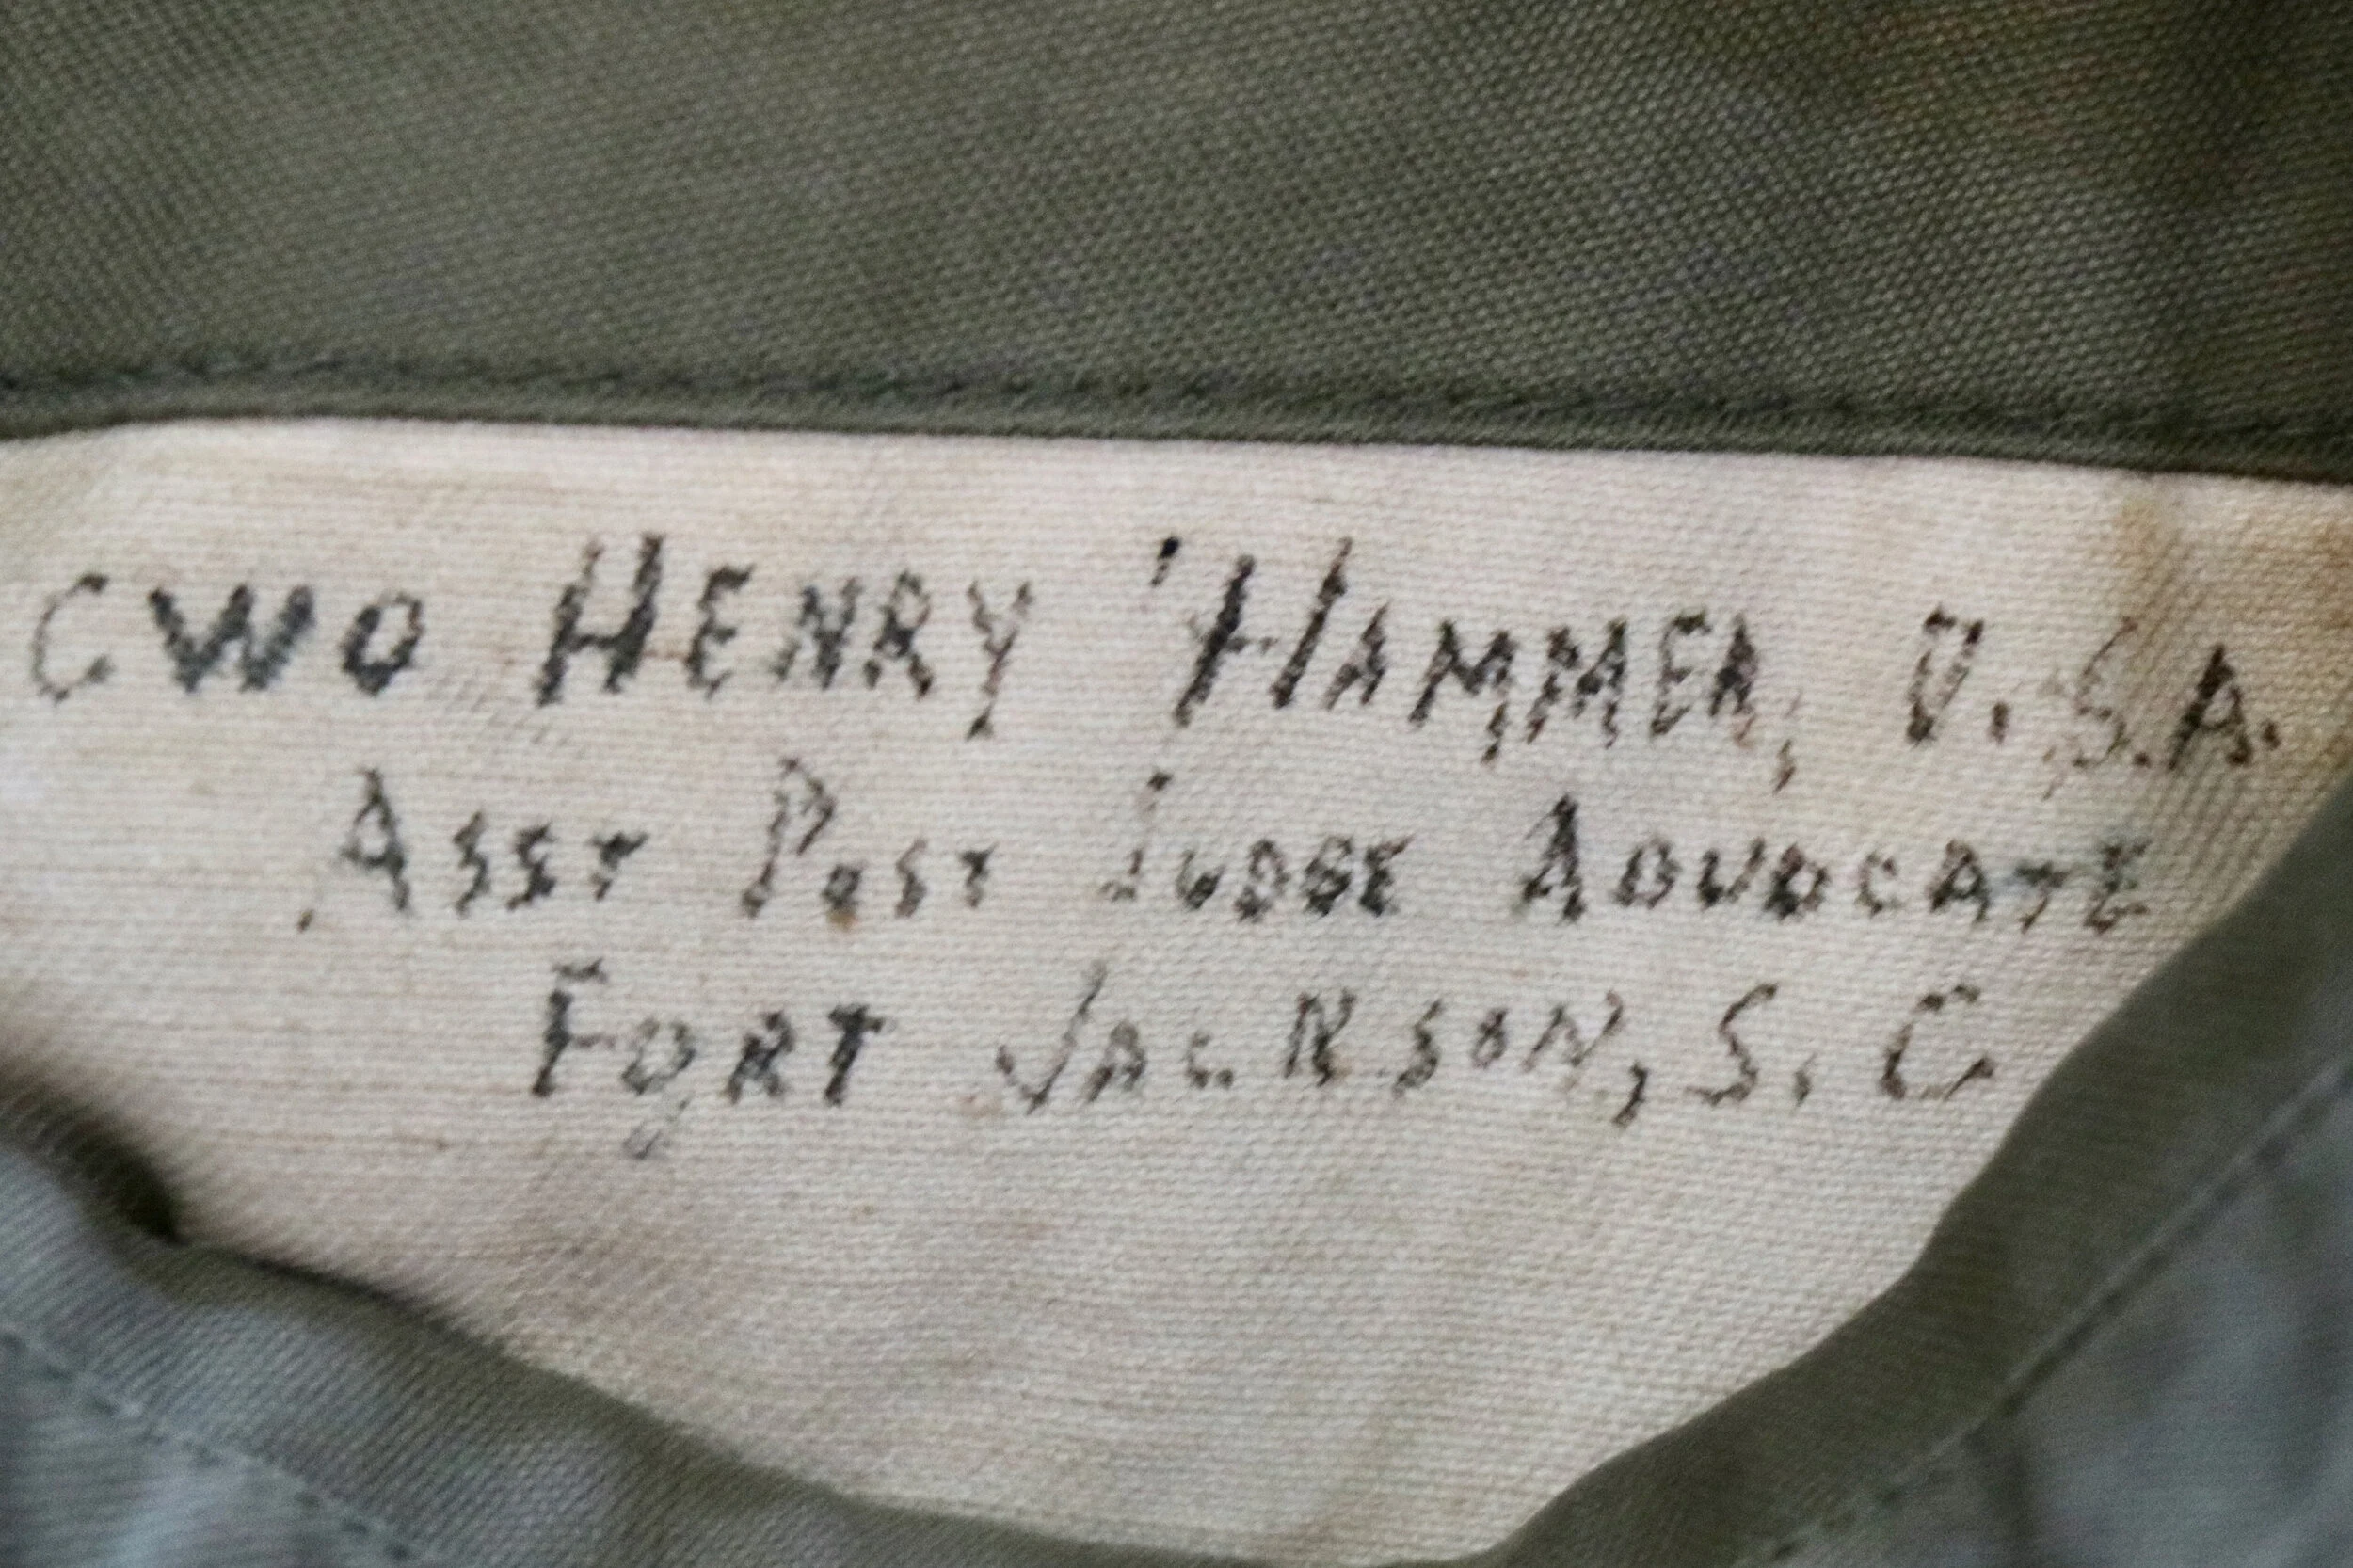 CWO HENRY HAMMER, U.S.A.
ASST POST JUDGE ADVOCATE
FORT JACKSON, S.C